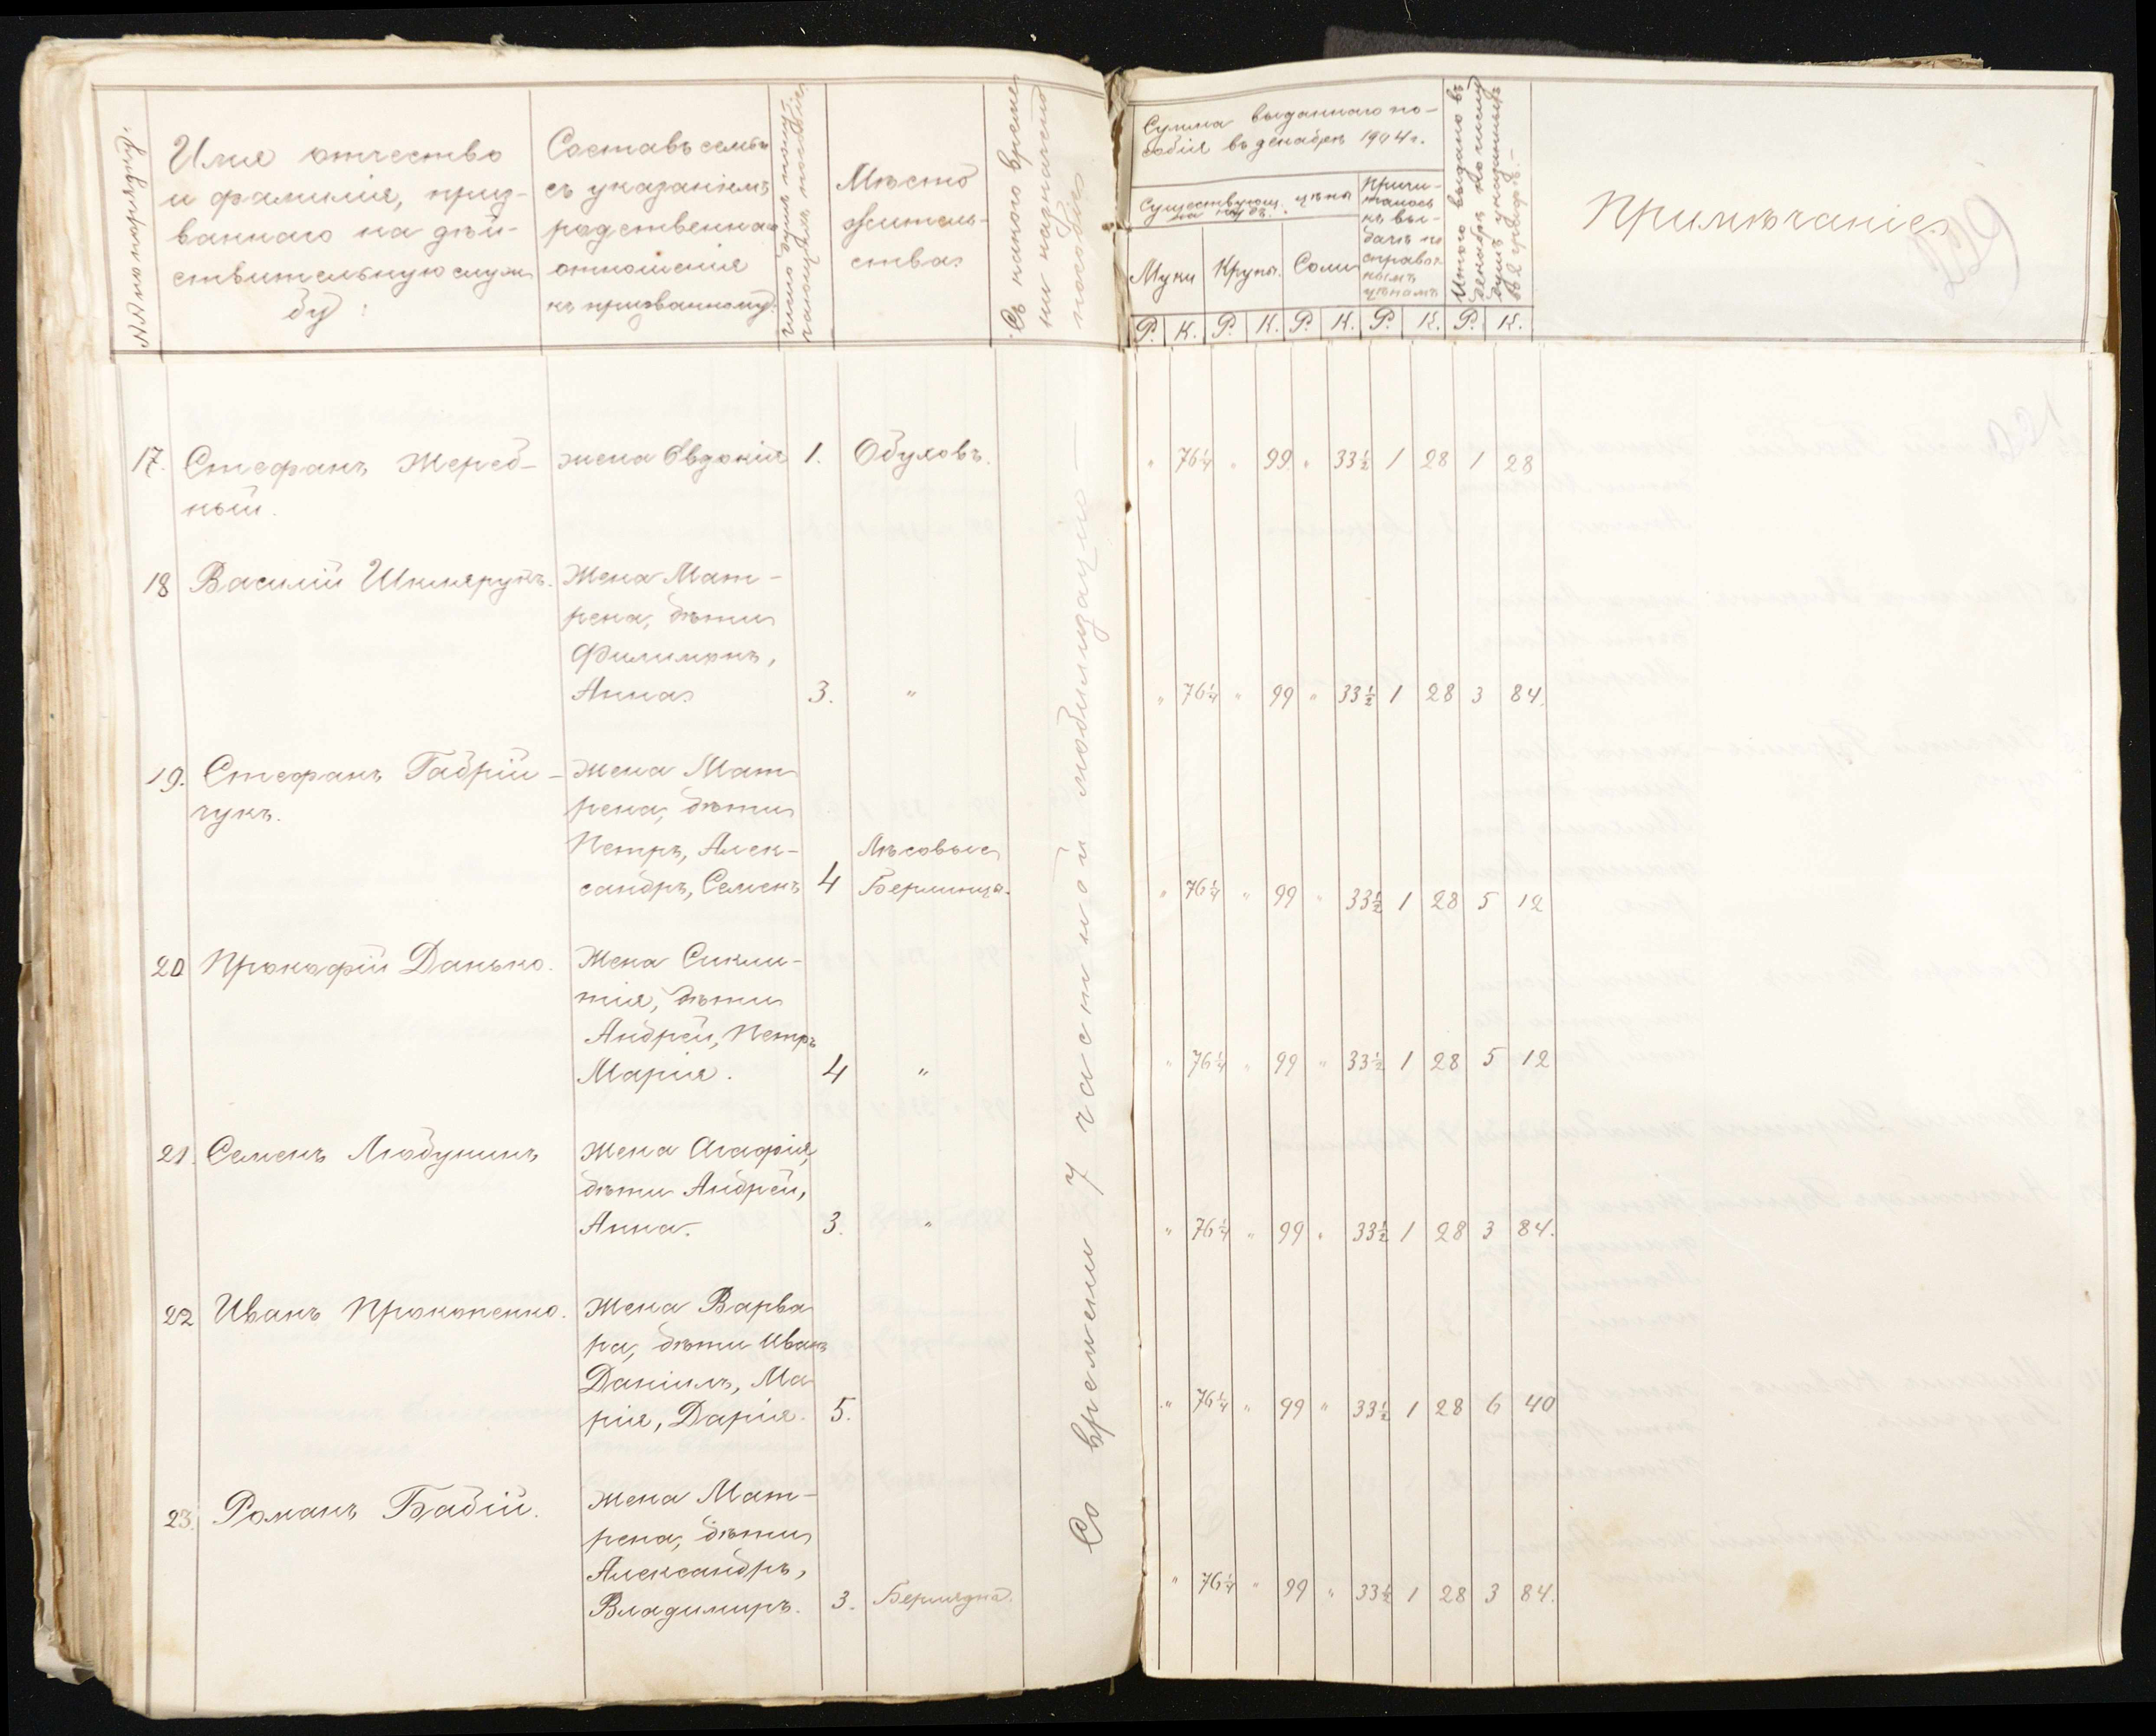 №№ по порядку.
Имя отчество
и фамилія, приз-
ваннаго на дѣй-
ствительную служ
бу:
Составъ семьи
съ указаніемъ
родственнаго
отношенія
къ призванному:
Число душъ полу-
чающихъ пособіе
Мѣсто
житель-
ства:
Съ какого време
ни назначено
пособіе
Сумма выданнаго по-
собія въ декабрѣ 1904 г.
Существующ. цѣна
на пудъ:
Муки
Крупы.
Соли
Причи-
талось
къ вы-
дачѣ по
справоч
нымъ
цѣнамъ
Итого выдано въ
декабрѣ по числу
душъ указанныхъ
въ 4 графѣ.-
Примѣчаніе
Р. К. Р. К. Р. К. Р. К. Р. К.
17. Стефанъ Жереб- жена Евдокія 1. Обуховъ. " 76¼ " 99 " 33½ 1 28 1 28
ный.
18 Василій Шклярукъ. Жена Мат-
рена, дѣти
Филимонъ,
Анна 3. " " 76¼ " 99 " 33½ 1 28 3 84.
19. Стефанъ Габрій- Жена Мат
чукъ. рена, дѣти
Петръ, Алек- Лѣсовые
сандръ, Семенъ 4 Берлинцы. " 76¼ " 99 " 33½ 1 28 5 12
20 Прокофій Данько. Жена Сикли-
тія, дѣти
Андрей, Петръ
Марія. 4 " " 76¼ " 99 " 33½ 1 28 5 12
21. Семенъ Любунинъ Жена Агафія,
дѣти Андрей,
Анна. 3. " " 76¼ " 99 " 33½ 1 28 3 84.
22 Иванъ Прокопенко. Жена Варва
ра, дѣти Иванъ
Даніилъ, Ма
рія, Дарія. 5. " 76¼ " 99 " 33½ 1 28 6 40
23. Романъ Бабій. Жена Мат-
рена, дѣти
Александръ,
Владимиръ. 3. " 76¼ " 99 " 33½ 1 28 3 84.
Со времени 7 частной мобилизаціи